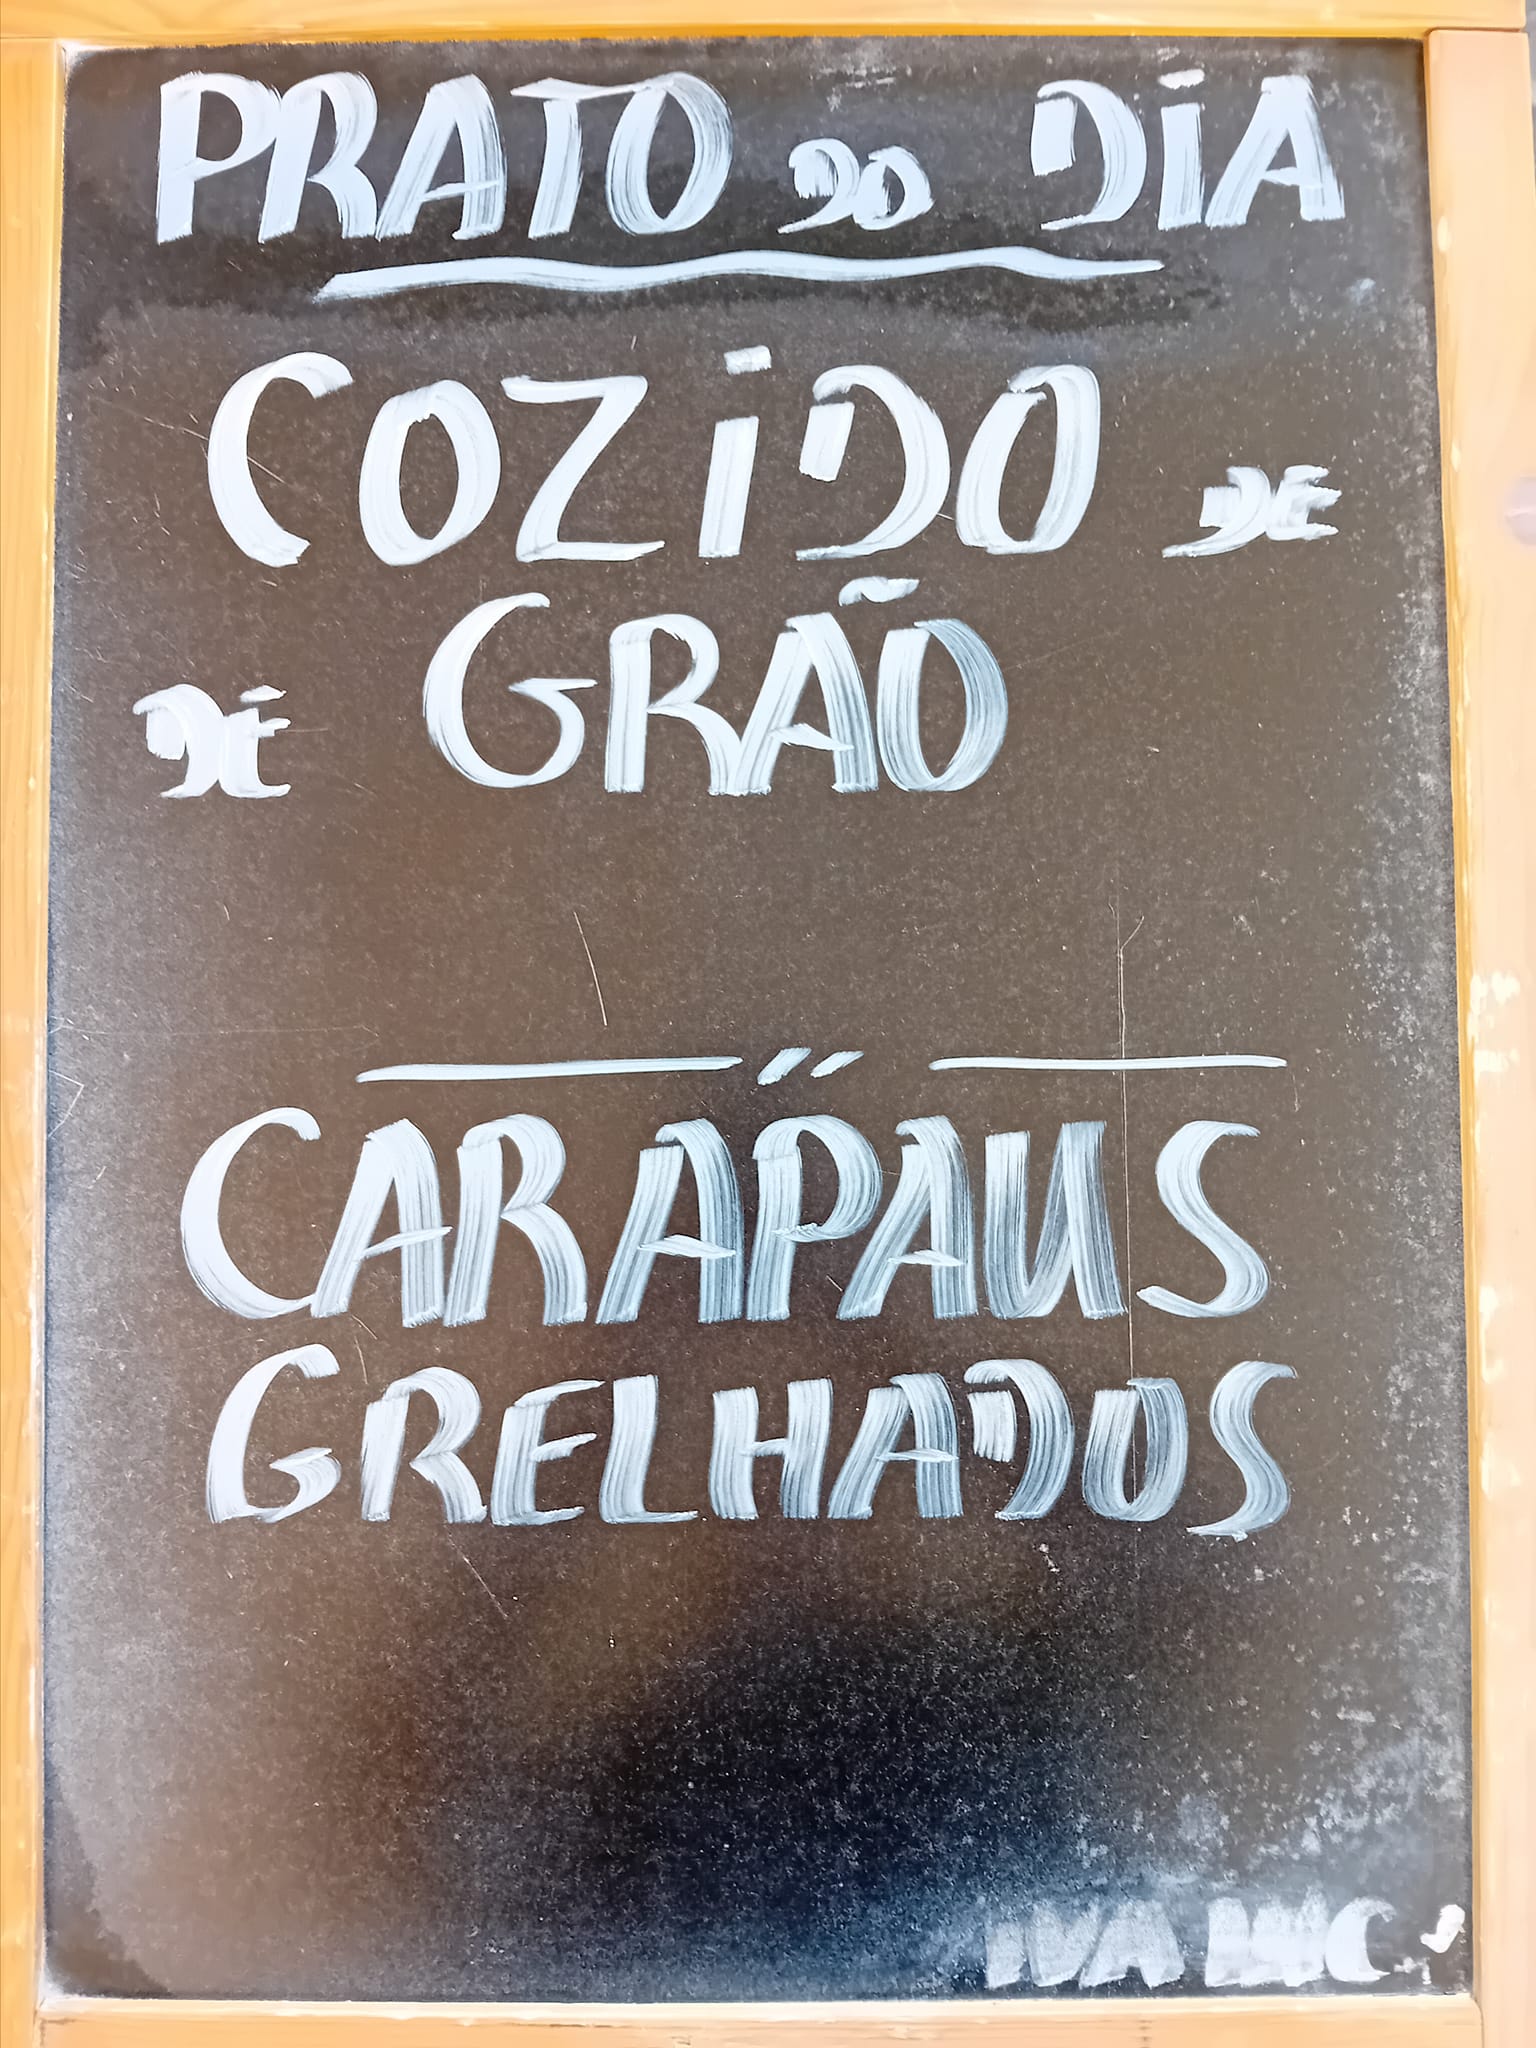 PRATO DO DiA
COZiDO DE
DE GRÃO
CARAPAUS
GRELHADOS
IVA INC.